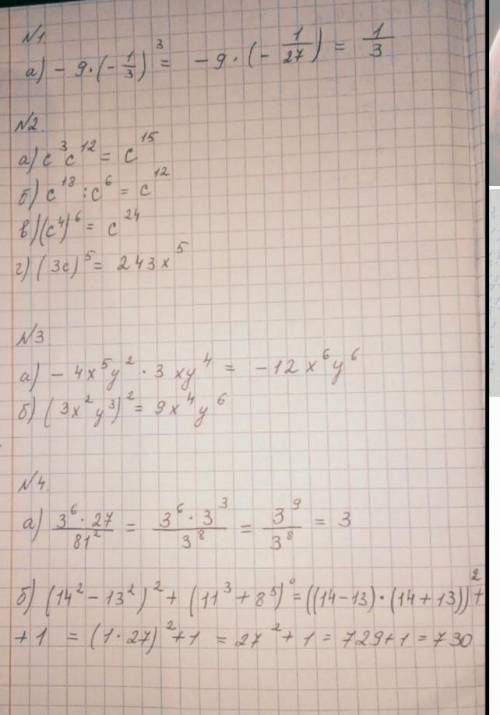 №1.
а) - 9 · (- 1/3)³ = - 9 · (- 1/27) = 1/3
№2
а) c³c¹² = c¹⁵
б) c¹⁸ : c⁶ = c¹²
в) (c⁴)⁶ = c²⁴
г) (3c)⁵ = 243x⁵
№3
а) - 4x⁵y² · 3xy⁴ = -12x⁶y⁶
б) (3x²y³)² = 9x⁴y⁶
№4.
а) 3⁶ · 27 / 81² = 3⁶ · 3³ / 3⁸ = 3⁹ / 3⁸ = 3
б) (14² - 13²)² + (11³ + 8⁵)⁰ = ((14 - 13) · (14 + 13))² +
+ 1 = (1 · 27)² + 1 = 27² + 1 = 729 + 1 = 730